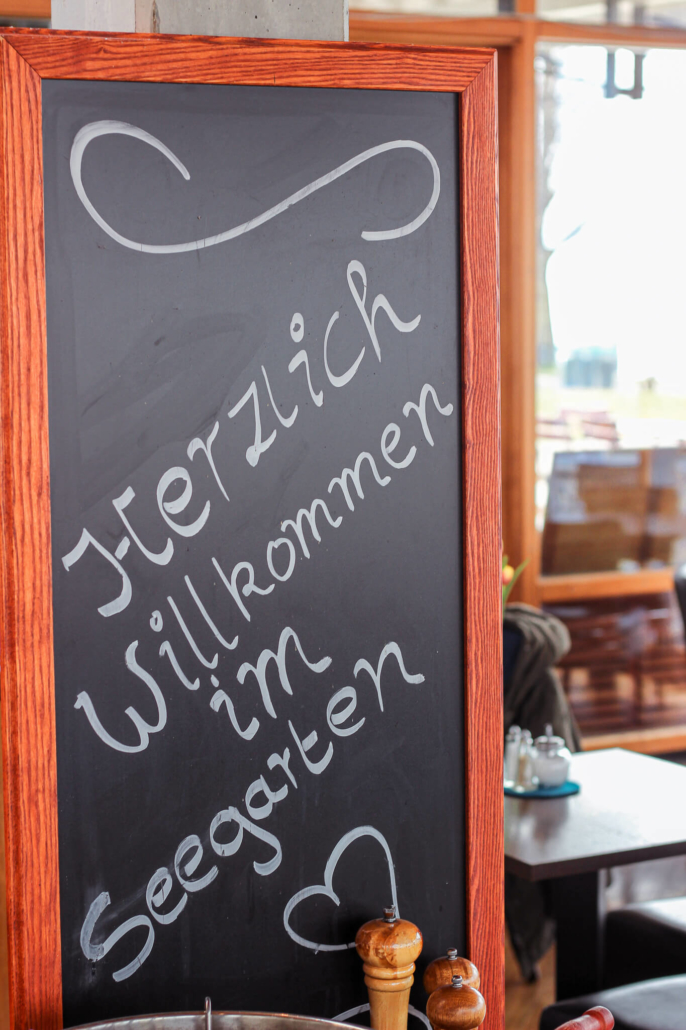 Herzlich
Willkommen
im
Seegarten